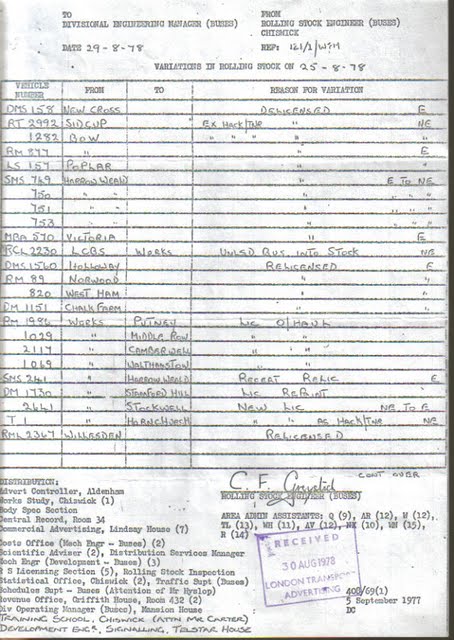 TO FROM
DIVISIONAL ENGINEERING MANAGER (BUSES) ROLLING STOCK ENGINEER (BUSES)
CHISWICK
DATE 29-8-78 REF: 121/1/WJH
VARIATIONS IN ROLLING STOCK ON 25-8-78
VEHICLE NUMBER FROM TO REASON FOR VARIATION
DMS 158 NEW CROSS DELICENSED E
RT 2992 SIDCUP EX HACK/TNR " NE
1282 BOW " " " " "
RM 877 " " E
LS 157 POPLAR " "
SMS 749 HARROW WEALD " E TO NE
750 " " " " " "
751 " " " " " "
753 " " " " " "
MBA 570 VICTORIA " E
RCL 2230 LCBS WORKS UNLSD BUS INTO STOCK NE
DMS 1560 HOLLOWAY RELICENSED E
RM 89 NORWOOD " "
820 WEST HAM " "
DM 1151 CHALK FARM " "
RM 1986 WORKS PUTNEY LIC O/HAUL "
1029 " MIDDLE ROW " " "
2117 " CAMBERWELL " " "
1069 " WALTHAMSTOW " " "
SMS 241 " HARROW WEALD RECERT RELIC E
DM 1730 " STAMFORD HILL LIC REPAINT "
2641 " STOCKWELL NEW LIC NE TO E
T 1 " HORNCHURCH " " AS HACK/TNR NE
RML 2367 WILLESDEN RELICENSED
CONT OVER
DISTRIBUTION: C. F.
Advert Controller, Aldenham ROLLING STOCK ENGINEER (BUSES)
Works Study, Chiswick (1)
Body Spec Section AREA ADMIN ASSISTANTS: Q (9), AR (12), W (12),
Central Record, Room 34 TL (13), WH (11), AV (12), NX (10), WN (15),
Commercial Advertising, Lindsay House (7) R (14)
Costs Office (Mech Engr - Buses) (2)
Scientific Adviser (2), Distribution Services Manager
Mech Engr (Development - Buses) (3)
R S Licensing Section (5), Rolling Stock Inspection
Statistical Office, Chiswick (2), Traffic Supt (Buses)
Schedules Supt - Buses (Attention of Mr Hyslop) 40D/69(1)
Revenue Office, Griffith House, Room 432 (2) 5 September 1977
Div Operating Manager (Buses), Mansion House DC
TRAINING SCHOOL, CHISWICK (ATTN MR CARTER)
DEVELOPMENT ENGR, SIGNALLING, TELSTAR HOUSE
RECEIVED
30 AUG 1978
LONDON TRANSPORT
ADVERTISING